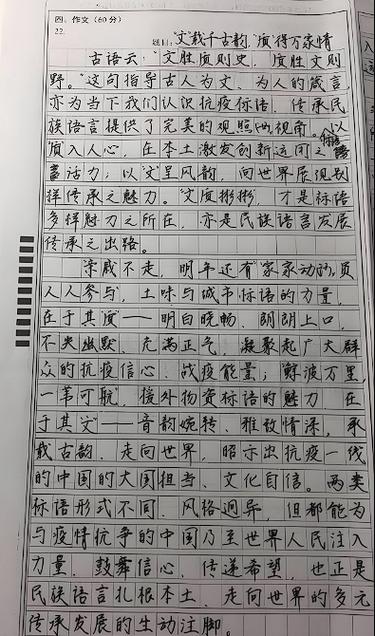 四、作文（60分）
22.
题目：“文”载千古韵，“质”得万家情
古语云：“文胜质则史，质胜文则
野。”这句指导古人为文、为人的箴言，
亦为当下我们认识抗疫标语、传承民
族语言提供了完美的观照视角。以
质入人心，在本土激发创新运用之
活力；以“文”呈风韵，向世界展现别
样传承之魅力。“文质彬彬”，才是标语
多样魅力之所在，亦是民族语言发展
传承之出路。
亲戚不走，明年还有“家家动的，员
人人参与”，土味与城市标语的力量，
在于其“质”——明白晓畅、朗朗上口，
不失幽默、充满正气，凝聚起广大群
众的抗疫信心、战疫能量；“鲸波万里，
一苇可航”，援外物资标语的魅力，在
于其“文”——音韵婉转、雅致情深，承
载古韵、走向世界，昭示出抗疫一线
的中国的大国担当、文化自信。两类
标语形式不同、风格迥异，但都能为
与疫情抗争的中国乃至世界人民注入
力量、鼓舞信心、传递希望，也正是
民族语言扎根本土、走向世界的多元
传承发展的生动注脚。